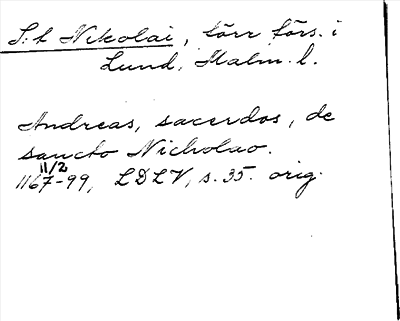 S:t Nikolai, förr förs. i
Lund, Malm. l.
Andreas, sacerdos, de
sancto Nicholao.
11/2
1167-99, LDLV, s. 35. orig.